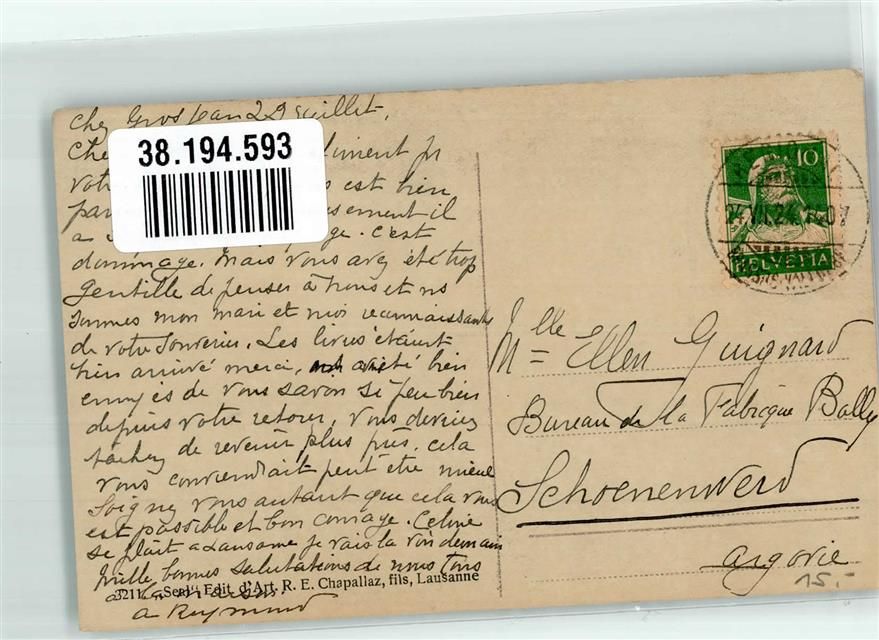 chez Grosjean 29 Juillet.
38.194.593
votre
est bien
il
a
c'est
dommage. Mais vous avez été trop
gentille de penser à nous et ns
sommes mon mari et moi reconnaissants
de votre souvenir. Les livres étaient
bien arrivé merci,
ennuyés de vous savoir si peu bien
depuis votre retour, vous devriez
tâchez de revenir plus près, cela
vous conviendrait peut être mieux
Soignez vous autant que cela vous
est possible et bon courage. Céline
se plait a Lausanne je vais la voir demain
Mille bonnes salutations de nous tous
3211. Edit. d'Art R. E. Chapallaz, fils, Lausanne
a Raymond
10
HELVETIA
Mlle Ellen Guignard
Bureau de la Fabrique Bally
Schoenenwerd
Argovie
15.-